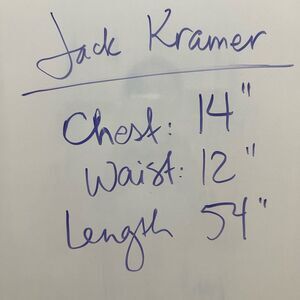 Jack Kramer
Chest: 14"
Waist: 12"
Length 54"